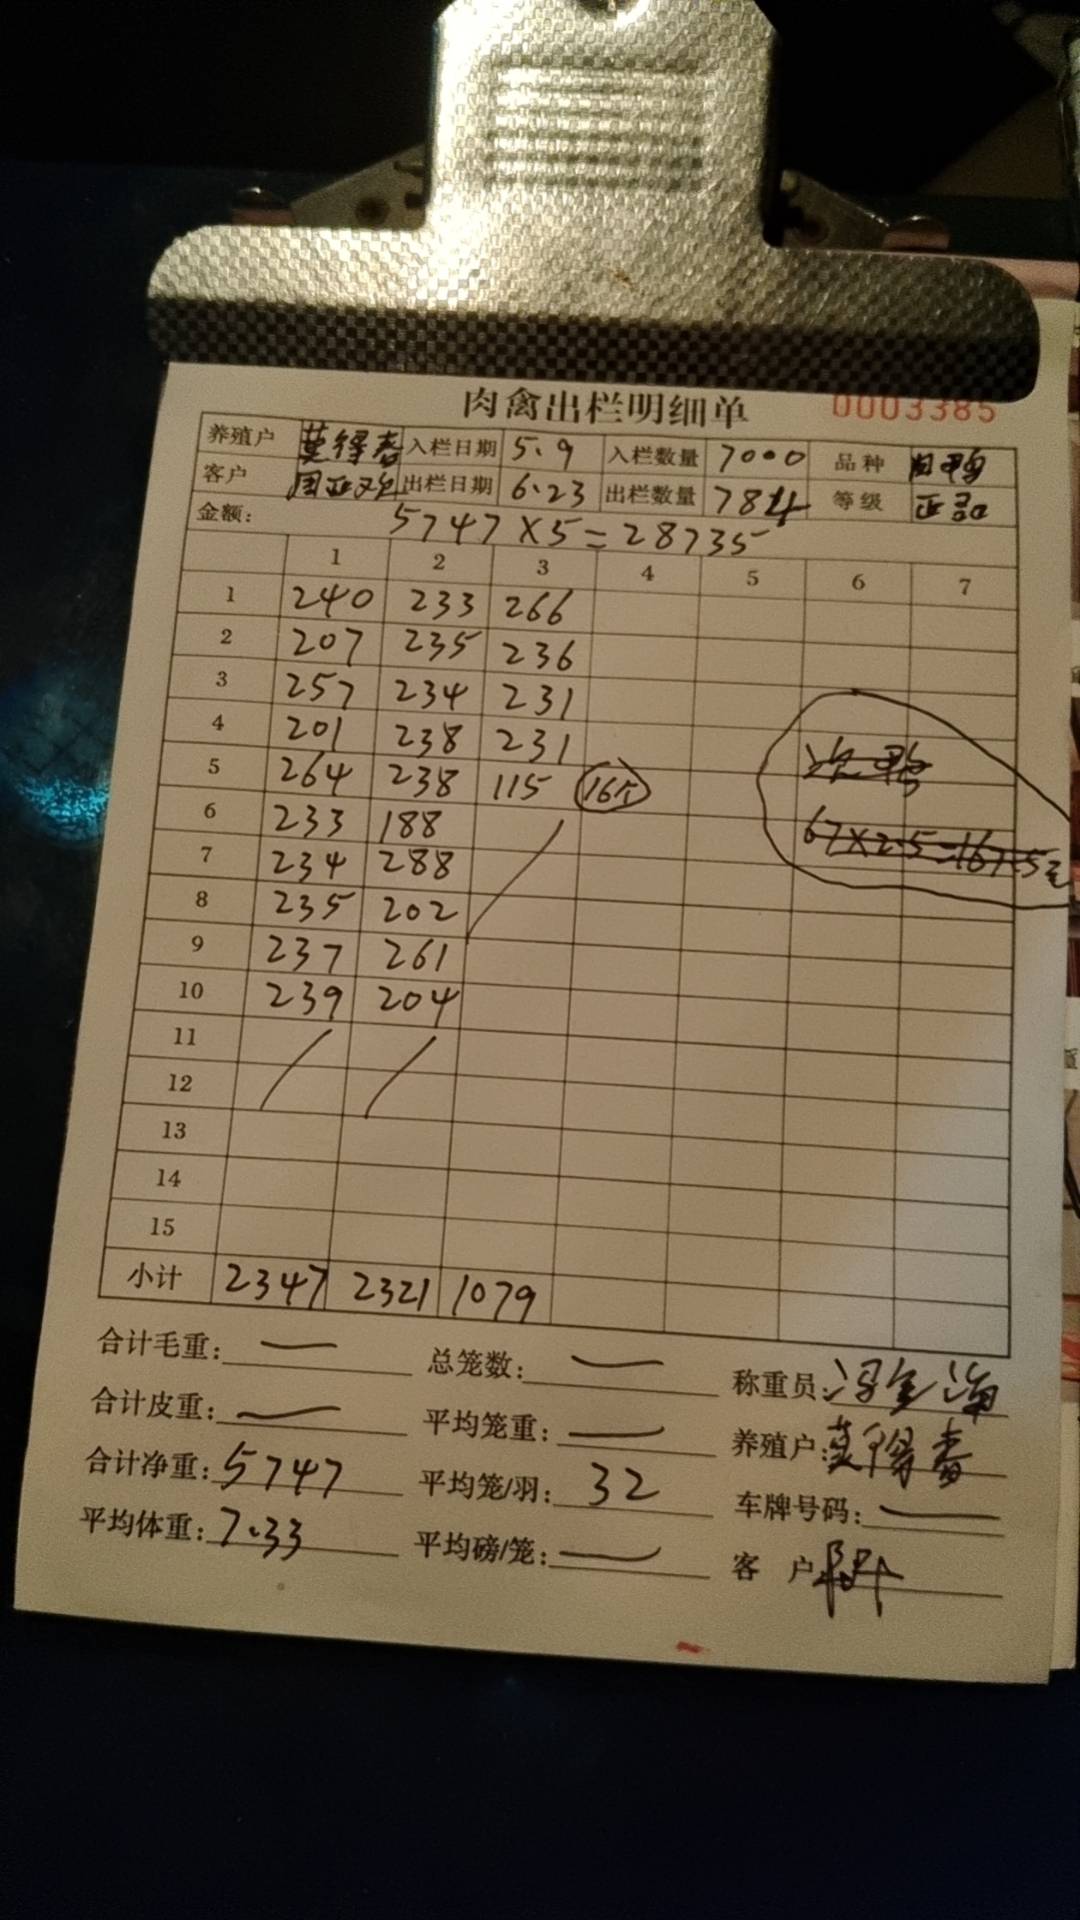 肉禽出栏明细单 0003385
养殖户 莫得春 入栏日期 5.9 入栏数量 7000 品种
客户 出栏日期 6.23 出栏数量 784 等级 正品
金额: 5747×5=28735
1 2 3 4 5 6 7
1 240 233 266
2 207 235 236
3 257 234 231
4 201 238 231
5 264 238 115 16只
6 233 188
7 234 288
8 235 202
9 237 261
10 239 204
11
12
13
14
15
次鸭
67×2.5=167.5元
小计 2347 2321 1079
合计毛重: — 总笼数: — 称重员:
合计皮重: — 平均笼重: — 养殖户: 莫得春
合计净重: 5747 平均笼/羽: 32 车牌号码: —
平均体重: 7.33 平均磅/笼: — 客 户